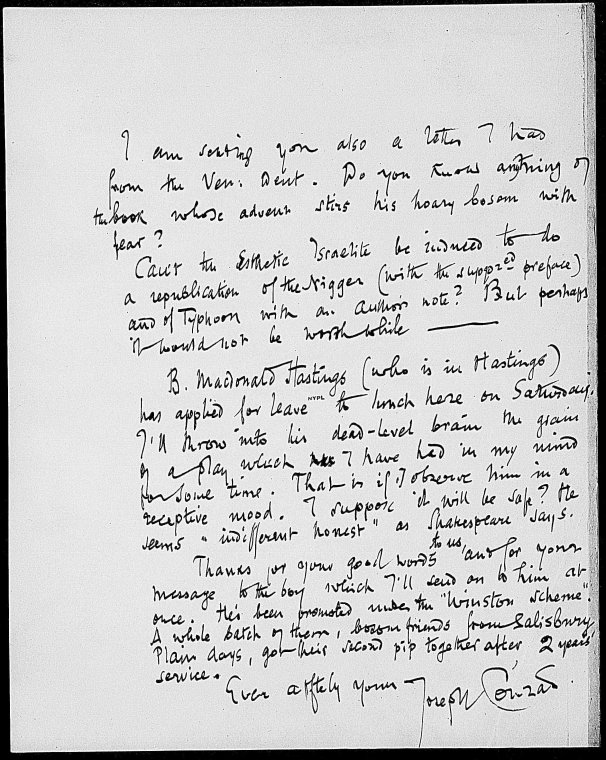 I am sending you also a letter I had
from the Ven: Dent. Do you know anything of
the book whose advent stirs his hoary bosom with
fear?
Can't the Esthetic Israelite be induced to do
a republication of the Nigger (with the suppred preface)
and of Typhoon with an author's note? But perhaps
it would not be worth while ———
B. Macdonald Hastings (who is in Hastings)
has applied for leave to lunch here on Saturday.
NYPL
I'll throw into his dead-level brain the grain
of a play which I have had in my mind
for some time. That is if I observe him in a
receptive mood. I suppose it will be safe? He
seems "indifferent honest" as Shakespeare says.
Thanks for your good words to us, and for your
message to the boy which I'll send on to him at
once. He's been promoted under the "Winston scheme".
A whole batch of them, bosom friends from Salisbury
Plain days, got their second pip together after 2 years'
service.
Ever affctely yours
Joseph Conrad